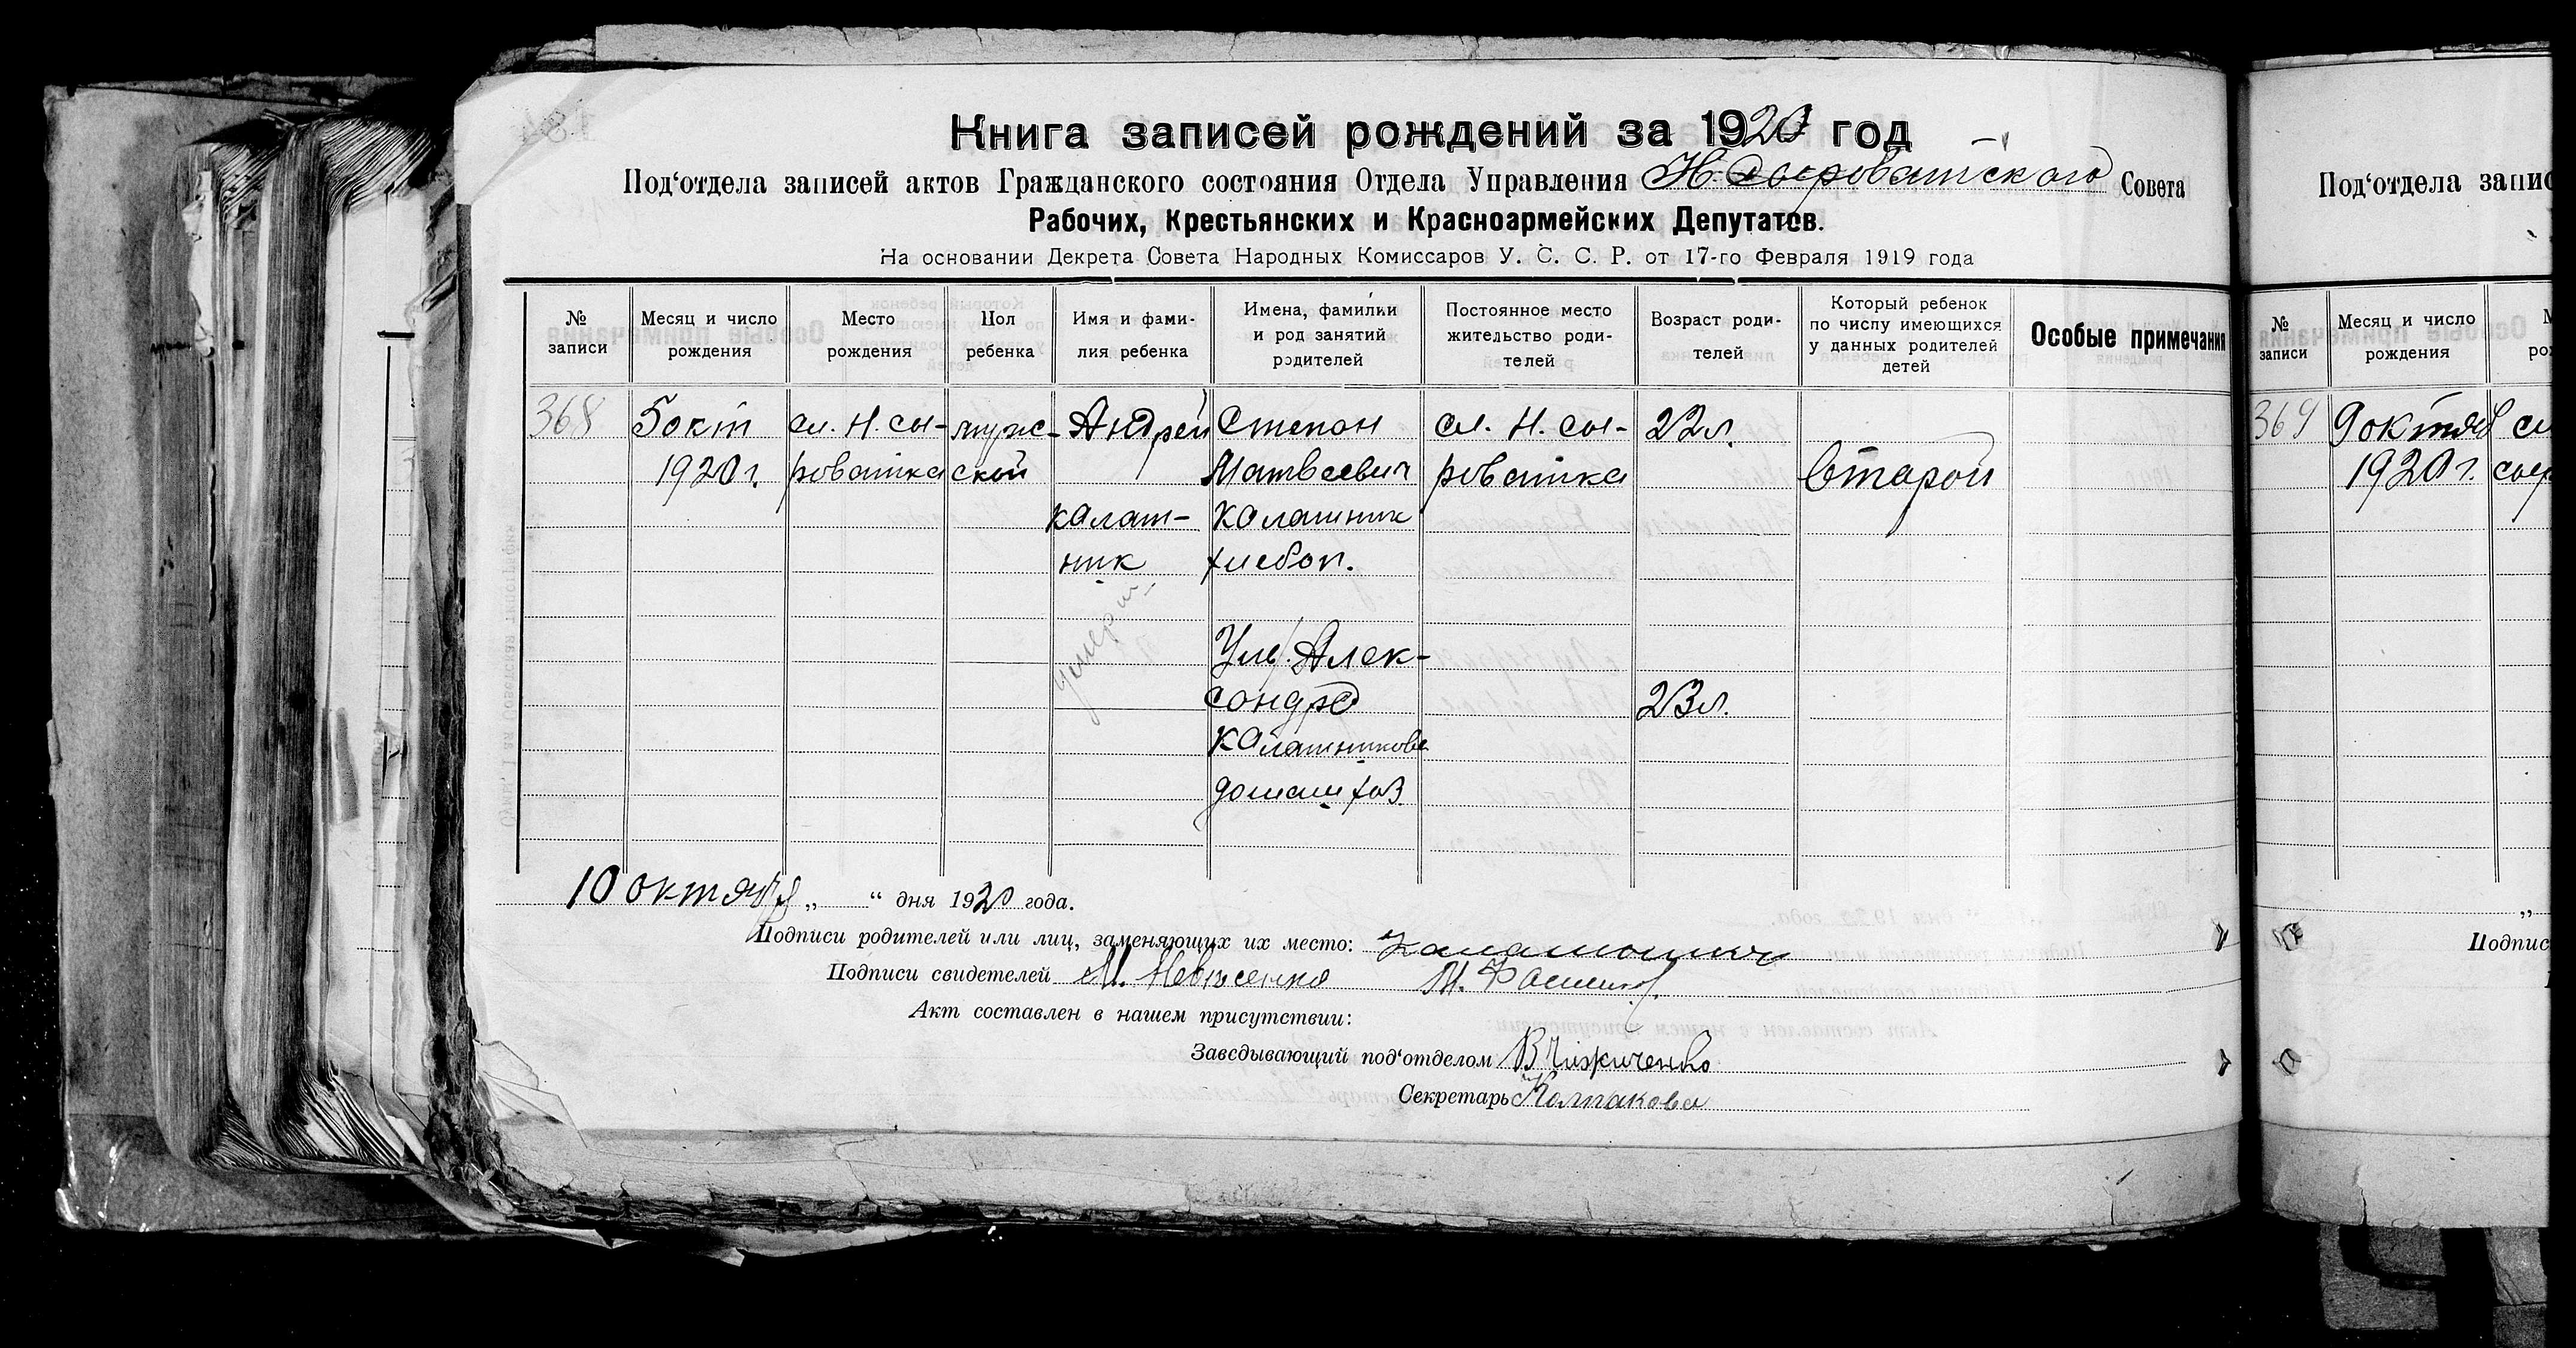 Книга записей рождений за 1920 год
Под‘отдела записей актов Гражданского состояния Отдела Управления Н. Сыроватского Совета
Рабочих, Крестьянских и Красноармейских Депутатов.
На основании Декрета Совета Народных Комиссаров У. С. С. Р. от 17-го Февраля 1919 года
№ записи
Месяц и число рождения
Место рождения
Пол ребенка
Имя и фами-
лия ребенка
Имена, фамилии
и род занятий
родителей
Постоянное место
жительство роди-
телей
Возраст роди-
телей
Который ребенок
по числу имеющихся
у данных родителей
детей
Особые примечания
368
5 окт
1920 г.
сл. Н. Сы-
роватка
мужс-
ской
Андрей
Калаш-
ник
умер
Степан
Матвеевич
Калашник
хлебоп.
Алек-
сандра
Калашникова
домаш хоз
сл. Н. Сы-
роватка
22 л.
23 л.
Второй
10 октября „ “ дня 1920 года.
Подписи родителей или лиц, заменяющих их место: Калашник
Подписи свидетелей М.
Акт составлен в нашем присутствии:
Заведывающий под‘отделом
Секретарь Колпакова
Под‘отдела запис
№ записи
Месяц и число рождения
369
9 октяб
1920 г.
сы
„
Подпис